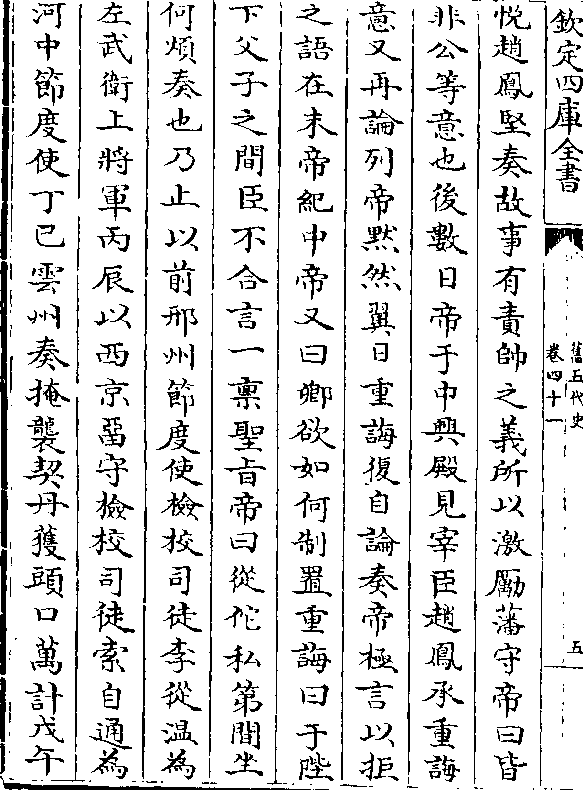 欽定四庫全書
舊五代史
卷四十一
五
悦趙鳳堅奏故事有責帥之義所以激勵藩守帝曰皆
非公等意也後數日帝于中興殿見宰臣趙鳳承重誨
意又再論列帝黙然翼日重誨復自論奏帝極言以拒
之語在末帝紀中帝又曰卿欲如何制置重誨曰于陛
下父子之間臣不合言一禀聖旨帝曰從佗私第閒坐
何煩奏也乃止以前邢州節度使檢校司徒李從温為
左武衛上將軍丙辰以西京留守檢校司徒索自通為
河中節度使丁巳雲州奏掩襲契丹獲頭口萬計戊午